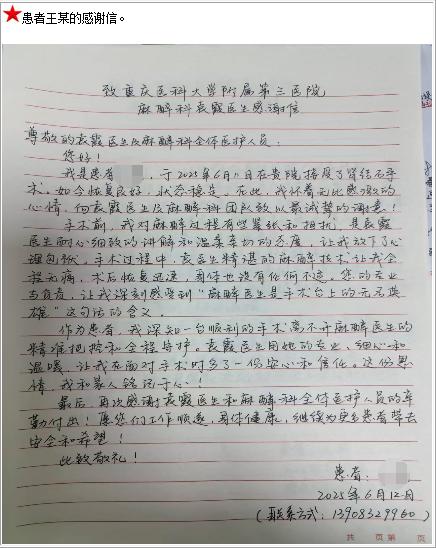 ★患者王某的感谢信。
致重庆医科大学附属第三医院
麻醉科袁霞医生感谢信
尊敬的袁霞医生及麻醉科全体医护人员:
您好!
我是患者 ,于2025年6月11日在贵院接受了肾结石手
术。如今恢复良好,状态稳定。在此,我怀着无比感激的
心情,向袁霞医生及麻醉科团队致以最诚挚的谢意!
手术前,我对麻醉过程有些紧张和担忧,是袁霞
医生耐心细致的讲解和温柔亲切的态度,让我放下了心
理包袱。手术过程中,袁霞医生精湛的麻醉技术让我全
程无痛,术后恢复迅速,身体也没有任何不适。您的专业
与负责,让我深刻感受到“麻醉医生是手术台上的无名英
雄”这句话的含义。
作为患者,我深知一台顺利的手术离不开麻醉医生的
精准把控和全程守护。袁霞医生用她的专业、细心和
温暖,让我在面对手术时多了一份安心和信任。这份恩
情,我和家人铭记于心!
最后,再次感谢袁霞医生和麻醉科全体医护人员的辛
勤付出!愿您们工作顺遂,身体健康,继续为更多患者带去
安全和希望!
此致敬礼!
患者:
2025年6月12日
(联系方式:13908329960)
共 页 第 页